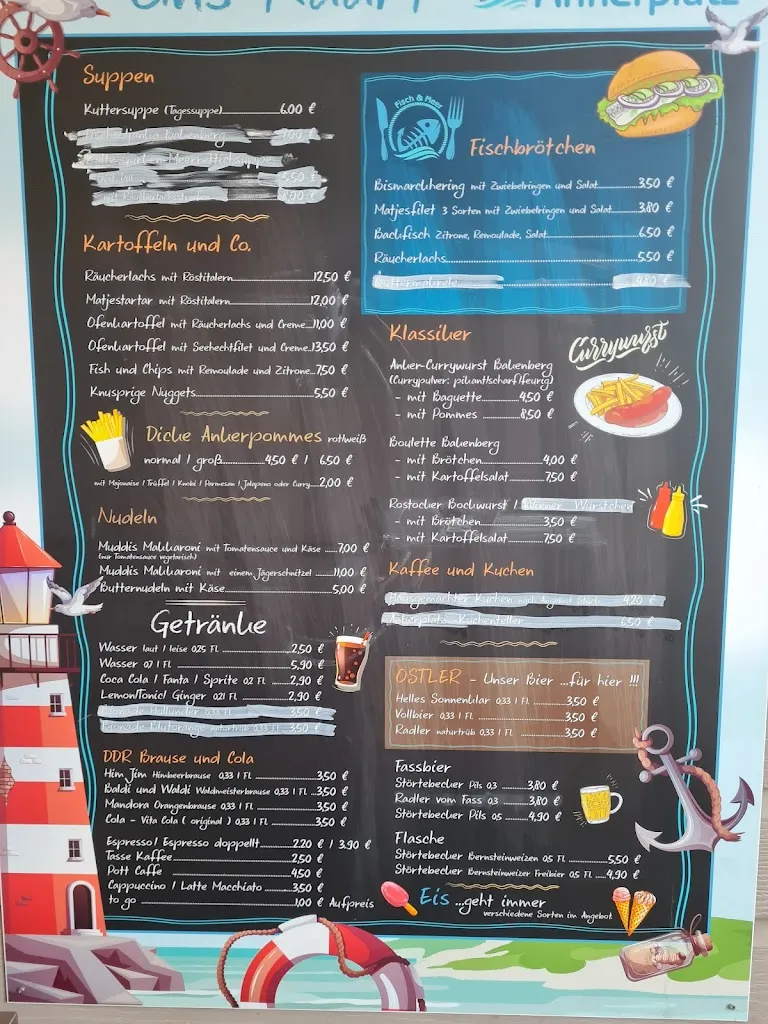 Suppen
Kuttersuppe (Tagessuppe)..............6.00 €
Kartoffeln und Co.
Räucherlachs mit Röstitalern..............12,50 €
Matjestartar mit Röstitalern..............12,00 €
Ofenkartoffel mit Räucherlachs und Creme..11,00 €
Ofenkartoffel mit Seehechtfilet und Creme..13,50 €
Fish und Chips mit Remoulade und Zitrone..7,50 €
Knusprige Nuggets..............5,50 €
Dicke Ankerpommes rot/weiß
normal / groß..............4,50 € / 6.50 €
mit Mayonaise / Trüffel / Knobi / Parmesan / Jalapeno oder Curry....2,00 €
Nudeln
Muddis Makkaroni mit Tomatensauce und Käse .....7,00 €
(nur Tomatensauce vegetarisch)
Muddis Makkaroni mit einem Jägerschnitzel .....11,00 €
Butternudeln mit Käse..............5,00 €
Getränke
Wasser laut / leise 0,25 Fl. ..............2,50 €
Wasser 0,7 l Fl. ..............5,90 €
Coca Cola / Fanta / Sprite 0,2 Fl. ......2,90 €
Lemon/Tonic/ Ginger 0,21 Fl. ..............2,90 €
3,50 €
3,50 €
DDR Brause und Cola
Him Jim Himbeerbrause 0,33 l Fl. ..............3,50 €
Baldi und Waldi Waldmeisterbrause 0,33 l Fl. ....3,50 €
Mandora Orangenbrause 0,33 l Fl. ..............3,50 €
Cola - Vita Cola ( original ) 0,33 l Fl. ..............3,50 €
Espresso/ Espresso doppelt..............2.20 € / 3.90 €
Tasse Kaffee ..............2,50 €
Pott Caffe ..............4,50 €
Cappuccino / Latte Macchiato ..............3,50 €
to go ..............1,00 € Aufpreis
Fisch & Meer
Fischbrötchen
Bismarckhering mit Zwiebelringen und Salat..............3,50 €
Matjesfilet 3 Sorten mit Zwiebelringen und Salat........3,80 €
Backfisch Zitrone, Remoulade, Salat..............6,50 €
Räucherlachs..............5,50 €
Klassiker
Currywurst
Anker-Currywurst Bakenberg
(Currypulver: pikant/scharf/feurig)
- mit Baguette..............4,50 €
- mit Pommes ..............8,50 €
Boulette Bakenberg
- mit Brötchen..............4,00 €
- mit Kartoffelsalat..............7,50 €
Rostocker Bockwurst / Wiener Würstchen
- mit Brötchen..............3,50 €
- mit Kartoffelsalat..............7,50 €
Kaffee und Kuchen
Hausgemachter Kuchen nach Angebot 4,20 €
Kuchenteller 6,50 €
OSTLER - Unser Bier ...für hier !!!
Helles Sonnenklar 0,33 l Fl. ..............3,50 €
Vollbier 0,33 l Fl. ..............3,50 €
Radler naturtrüb 0,33 l Fl. ..............3,50 €
Fassbier
Störtebecker Pils 0,3 ..............3,80 €
Radler vom Fass 0,3 ..............3,80 €
Störtebecker Pils 0,5 ..............4,90 €
Flasche
Störtebecker Bernsteinweizen 0,5 Fl. ..............5,50 €
Störtebecker Bernsteinweizer Freibier 0,5 Fl. ....4,90 €
Eis ...geht immer
verschiedene Sorten im Angebot